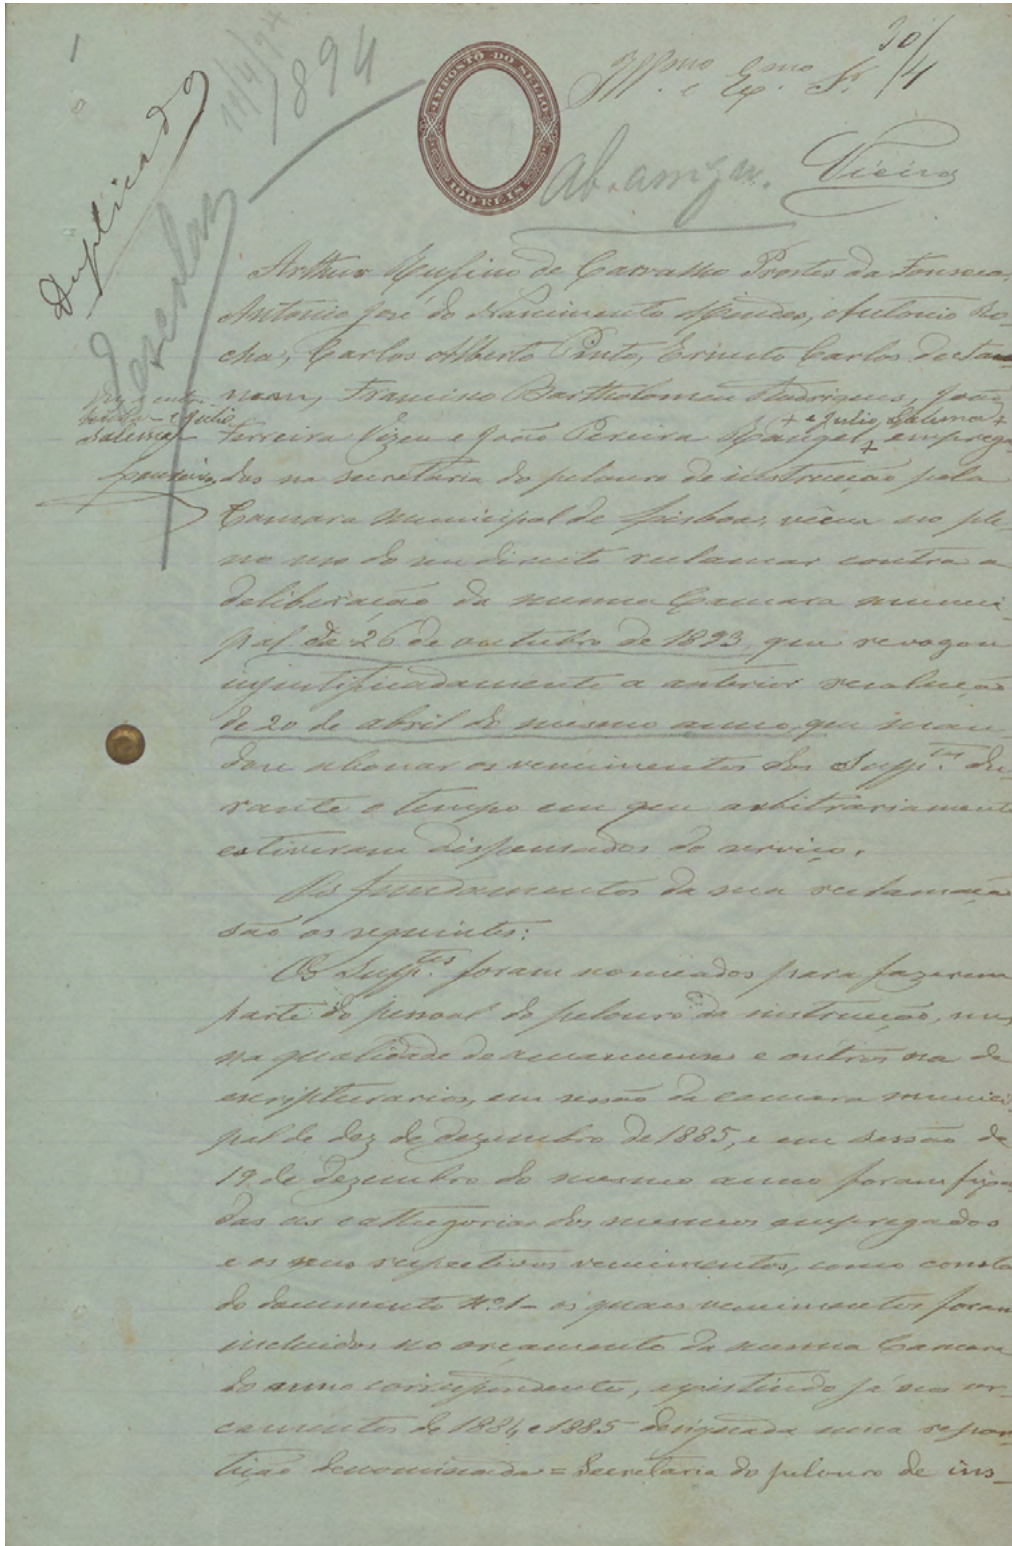 1
Duplicado
11/4/94
1894
IMPOSTO DO SELLO
100 RÉIS
Illmo e Exmo Sr.
30/4
Vieira
e Julio
Arthur Rufino de Carvalho Prostes da Fonseca,
Antonio José do Nascimento Mendes, Antonio Ro-
cha, Carlos Alberto Pinto, Ernesto Carlos
Francisco Bartholomeu Rodrigues, João
+ e Julio +
Ferreira Vizeu e João Pereira Rangel, + emprega-
dos na secretaria do pelouro de instrucção pela
Camara Municipal de Lisboa, vêem no ple-
no uso do seu direito reclamar contra a
deliberação da mesma Camara munici-
pal de 26 de outubro de 1893, que revogou
injustificadamente a anterior resolução
de 20 de abril do mesmo anno, que man-
dou abonar os vencimentos dos Supptes. du-
rante o tempo em que arbitrariamente
estiveram dispensados do serviço.
Os fundamentos da sua reclamação
são os seguintes:
Os Supptes. foram nomeados para fazerem
parte do pessoal do pelouro da instrucção, uns
na qualidade de amanuenses e outros na de
escripturarios, em sessão da camara munici-
pal de dez de dezembro de 1885, e em sessão de
19 de dezembro do mesmo anno foram fixa-
das as cathegorias dos mesmos empregados
e os seus respectivos vencimentos, como consta
do documento Nº 1 - os quaes vencimentos foram
incluidos no orçamento da mesma Camara
do anno correspondente, existindo já nos or-
çamentos de 1884 e 1885 designada uma repar-
tição denominada = Secretaria do pelouro de ins-